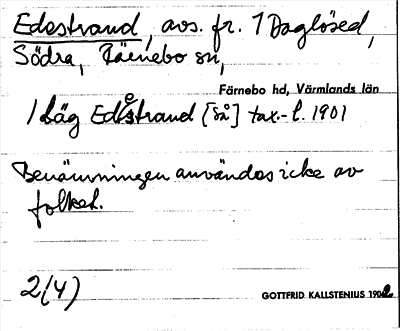 Edestrand, avs. fr. 1 Daglösed,
Södra, Färnebo sn,
Färnebo hd, Värmlands län
1 läg Edestrand [så] tax.-l. 1901
Benämningen användes icke av
folket.
2(4)
GOTTFRID KALLSTENIUS 1902